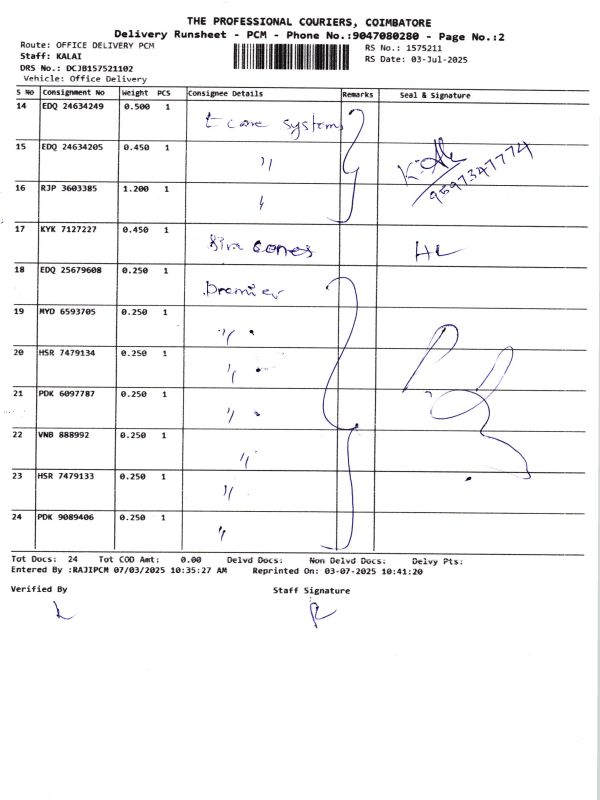 THE PROFESSIONAL COURIERS, COIMBATORE
Delivery Runsheet - PCM - Phone No.:9047080280 - Page No.:2
Route: OFFICE DELIVERY PCM
RS No.: 1575211
Staff: KALAI
RS Date: 03-Jul-2025
DRS No.: DCJB157521102
Vehicle: Office Delivery
S No Consignment No Weight PCS Consignee Details Remarks Seal & Signature
14 EDQ 24634249 0.500 1 E care systems
15 EDQ 24634205 0.450 1 〃
16 RJP 3603385 1.200 1 〃
9597347774
17 KYK 7127227 0.450 1 Siva cones
18 EDQ 25679608 0.250 1 Premier
19 MYD 6593705 0.250 1 〃
20 HSR 7479134 0.250 1 〃
21 PDK 6097787 0.250 1 〃
22 VNB 888992 0.250 1 〃
23 HSR 7479133 0.250 1 〃
24 PDK 9089406 0.250 1 〃
Tot Docs: 24 Tot COD Amt: 0.00 Delvd Docs: Non Delvd Docs: Delvy Pts:
Entered By :RAJIPCM 07/03/2025 10:35:27 AM Reprinted On: 03-07-2025 10:41:20
Verified By Staff Signature